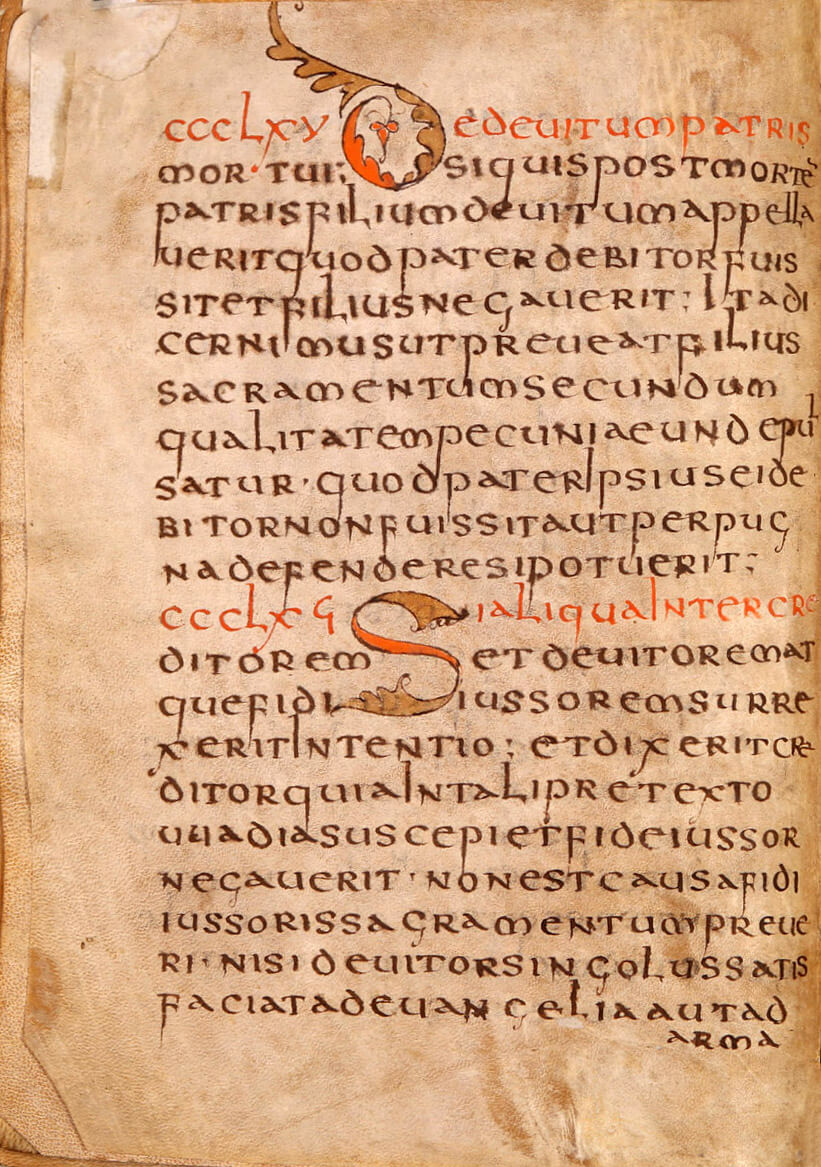 CCCLXV DEDEUITUMPATRIS
MOR·TUI; SIQUISPOSTMORTĒ
PATRISFILIUMDEUITUMAPPELLA
UERITQUODPATERDEBITORFUIS
SITETFILIUSNEGAUERIT; ITADI
CERNIMUSUTPREUEATFILIUS
SACRAMENTUMSECUNDUM
QUALITATEMPECUNIAEUNDEPUL
SATUR·QUODPATERIPSIUSEIDE
BITORNONFUISSITAUTPERPUG
NADEFENDERESIPOTUERIT;
CCCLXϚ SIALIQUAINTERCRE
DITOREM ETDEUITOREMAT
QUEFIDI IUSSOREMSURRE
XERITINTENTIO; ETDIXERITCRE
DITORQUIAINTALIPRETEXTO
UUADIASUSCEPIETFIDEIUSSOR
NEGAUERIT·NONESTCAUSAFIDI
IUSSORISSAGRAMENTUMPREUE
RI·NISIDEUITORSINGOLUSSATIS
FACIATADEUANGELIAAUTAD
ARMA